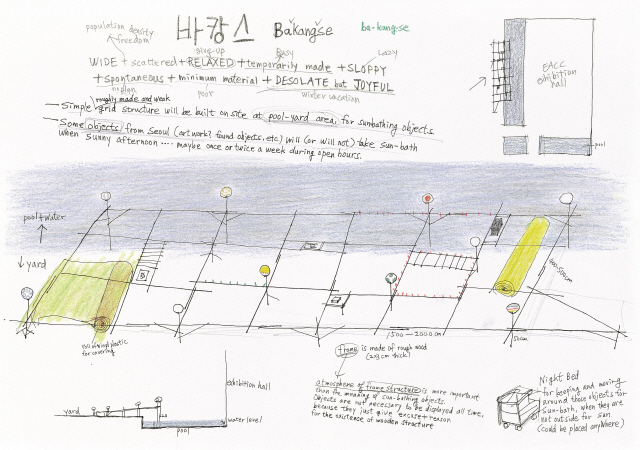 바캉스 Bakangse ba-kangse
population density
freedom
give-up
Busy
Lazy
WIDE + scattered + RELAXED + temporarily made + SLOPPY
+ spontaneous + minimum material + DESOLATE but JOYFUL
poor
winter vacation
roughly made and weak
Simple grid structure will be built on site at pool-yard area, for sunbathing objects
Some objects from Seoul (artwork? found objects, etc) will (or will not) take sun-bath
when sunny afternoon .... maybe once or twice a week during open hours.
EACC
exhibition
hall
pool
pool + water
yard
roll of vinyl plastic
for covering
1500 — 2000cm
50cm
frame is made of rough wood
atmosphere of frame structure is more important
than the meaning of sun-bathing objects.
Objects are not necessary to be displayed all time,
because they just give excuse + reason
for the existence of wooden structure
Night Bed
for keeping and moving
around those objects for
sun-bath, when they are
not outside for sun
(could be placed anywhere)
exhibition hall
yard
water level
pool